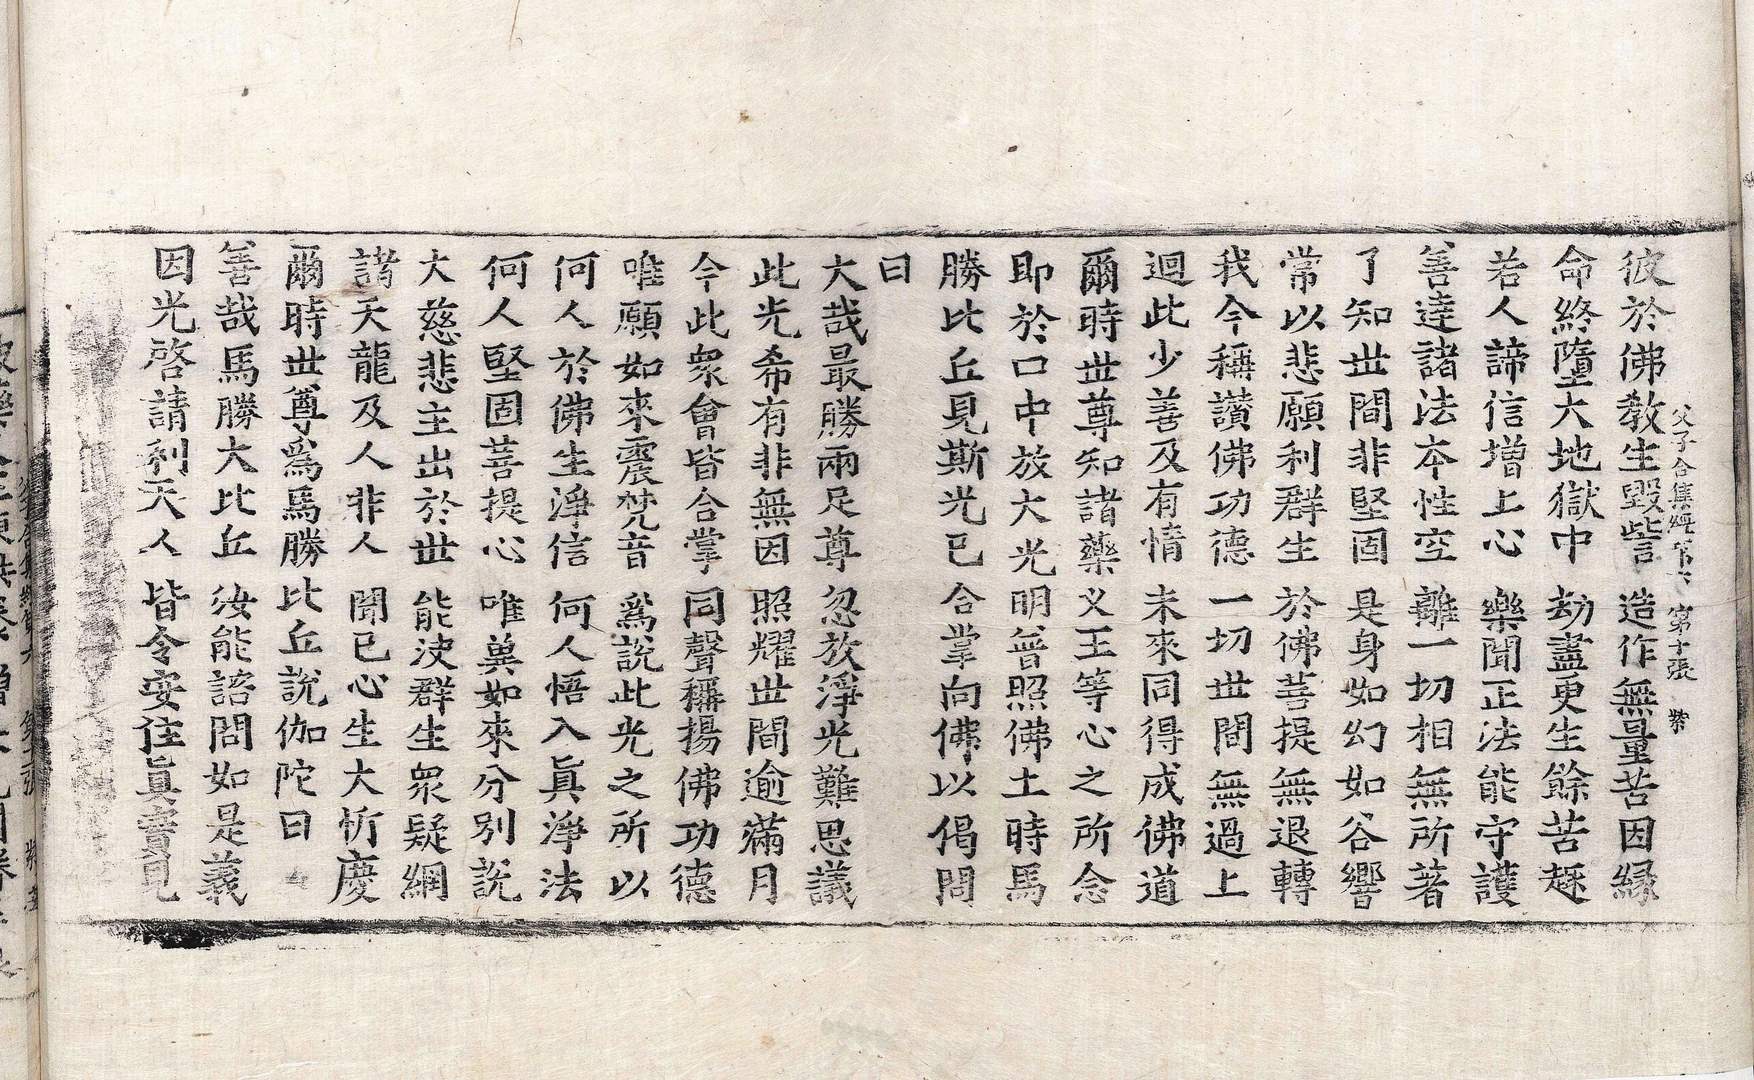 父子合集經第六 第十張 紫
彼於佛教生毀訾 造作無量苦因緣
命終墮大地獄中 劫盡更生餘苦趣
若人諦信增上心 樂聞正法能守護
善達諸法本性空 離一切相無所著
了知世間非堅固 是身如幻如谷響
常以悲願利群生 於佛菩提無退轉
我今稱讚佛功德 一切世間無過上
迴此少善及有情 未來同得成佛道
爾時世尊知諸藥义王等心之所念
即於口中放大光明普照佛土時馬
勝比丘見斯光已合掌向佛以偈問
曰
大哉最勝兩足尊 忽放淨光難思議
此光希有非無因 照耀世間逾滿月
今此衆會皆合掌 同聲稱揚佛功德
唯願如來震梵音 爲說此光之所以
何人於佛生淨信 何人悟入真淨法
何人堅固菩提心 唯兾如來分別說
大慈悲主出於世 能決群生衆疑網
諸天龍及人非人 聞已心生大忻慶
爾時世尊爲馬勝比丘說伽陀曰
善哉馬勝大比丘 汝能諮問如是義
因光啓請利天人 皆令安住真實見